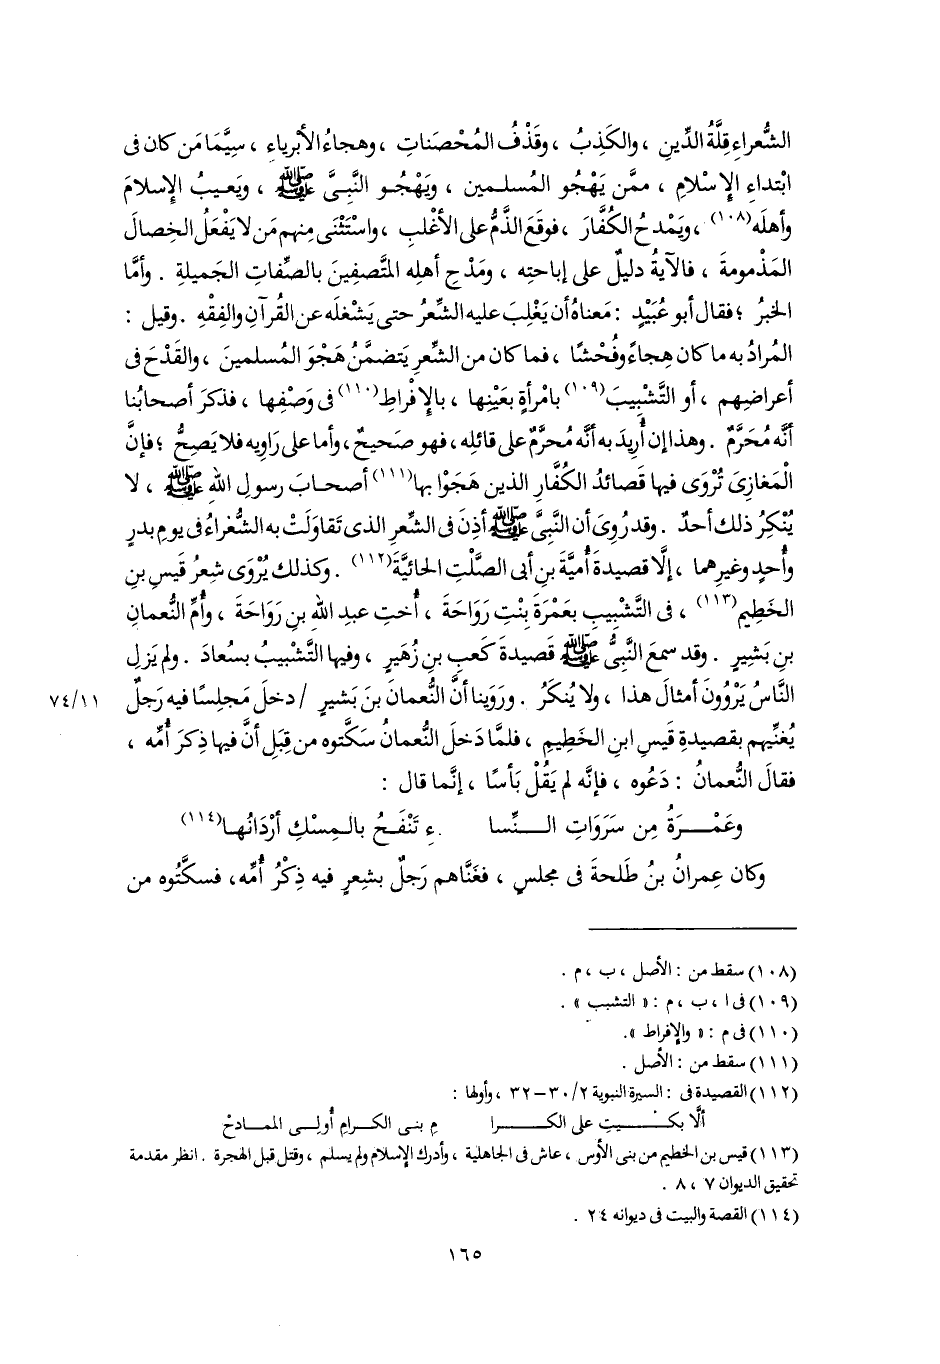 الشُّعراءِ قِلَّةُ الدِّينِ ، والكَذِبُ ، وقَذْفُ المُحْصَناتِ ، وهجاءُ الأبْرياءِ ، سِيَّمَا مَن كان فى
ابْتداءِ الإِسْلامِ ، ممَّن يَهْجُو المُسلمين ، ويَهْجُو النَّبِىَّ ﷺ ، ويَعيبُ الإِسلامَ
وأهلَه(١٠٨) ، ويَمْدحُ الكُفَّارَ ، فوقَعَ الذَّمُّ على الأغْلبِ ، واسْتَثْنَى منهم مَن لا يَفْعَلُ الخِصالَ
المَذْمومةَ ، فالآيةُ دليلٌ على إباحتِه ، ومَدْحِ أهلِه المتَّصفِينَ بالصِّفاتِ الجَميلةِ . وأمَّا
الخبرُ ؛ فقال أبو عُبَيْدٍ : مَعناهُ أن يَغْلِبَ عليه الشِّعرُ حتى يَشْغلَه عن القُرآنِ والفِقْهِ . وقيل :
المُرادُ به ما كان هِجاءً وفُحْشًا ، فما كان من الشِّعرِ يَتضمَّنُ هَجْوَ المُسلمينَ ، والقَدْحَ فى
أعراضِهم ، أو التَّشْبِيبَ(١٠٩) بامْرأةٍ بعَيْنِها ، بالإِفْراطِ(١١٠) فى وَصْفِها ، فذكرَ أصحابُنا
أنَّه مُحَرَّمٌ . وهذا إن أُرِيدَ به أنَّه مُحرَّمٌ على قائلِه ، فهو صَحيحٌ ، وأما على رَاوِيه فلا يَصِحُّ ؛ فإنَّ
الْمَغازِىَ تُرْوَى فيها قصائدُ الكُفَّارِ الذين هَجَوْا بها(١١١) أصحابَ رسولِ اللهِ ﷺ ، لا
يُنْكِرُ ذلك أحدٌ . وقد رُوِىَ أن النَّبِىَّ ﷺ أذِنَ فى الشِّعرِ الذى تَقاوَلَتْ به الشُّعراءُ فى يومِ بدرٍ
وأُحدٍ وغيرِهما ، إلَّا قصيدةَ أُميَّةَ بنِ أبى الصَّلْتِ الحائيَّةَ(١١٢) . وكذلك يُرْوَى شِعرُ قَيسِ بنِ
الخَطِيمِ(١١٣) ، فى التَّشْبيبِ بعَمْرَةَ بِنْتِ رَوَاحَةَ ، أُختِ عبدِ اللهِ بنِ رَوَاحَةَ ، وأُمِّ النُّعمانِ
بنِ بَشِيرٍ . وقد سمعَ النَّبِىُّ ﷺ قصيدةَ كَعبِ بنِ زُهَيرٍ ، وفيها التَّشْبيبُ بسُعادَ . ولم يَزلِ
النَّاسُ يَرْوُونَ أمثالَ هذا ، ولا يُنكَرُ . ورَوَينا أنَّ النُّعمانَ بنَ بَشيرٍ / دخلَ مَجلِسًا فيه رَجلٌ ٧٤/١١
يُغنِّيهم بقصيدةِ قيسِ ابنِ الخَطِيمِ ، فلمَّا دَخلَ النُّعمانُ سَكَّتوه من قِبَلِ أنَّ فيها ذِكرَ أُمِّه ،
فقالَ النُّعمانُ : دَعُوه ، فإنَّه لم يَقُلْ بَأسًا ، إنَّما قال :
وعَمْـرَةُ مِن سَرَوَاتِ النِّسا ءِ تَنْفَحُ بالمِسْكِ أرْدَانُها(١١٤)
وكان عِمرانُ بنُ طَلحةَ فى مجلسٍ ، فغَنَّاهم رَجلٌ بشِعرٍ فيه ذِكْرُ أُمِّه ، فسكَّتُوه من
(١٠٨) سقط من : الأصل ، ب ، م .
(١٠٩) فى ا ، ب ، م : « التشبب » .
(١١٠) فى م : « والإفراط » .
(١١١) سقط من : الأصل .
(١١٢) القصيدة فى : السيرة النبوية ٣٠/٢ – ٣٢ ، وأولها :
ألَّا بكَـيتِ على الكرا مِ بنى الكرامِ أُولى الممادحْ
(١١٣) قيس بن الخطيم من بنى الأوس ، عاش فى الجاهلية ، وأدرك الإسلام ولم يسلم ، وقتل قبل الهجرة . انظر مقدمة
تحقيق الديوان ٧ ، ٨ .
(١١٤) القصة والبيت فى ديوانه ٢٤ .
١٦٥